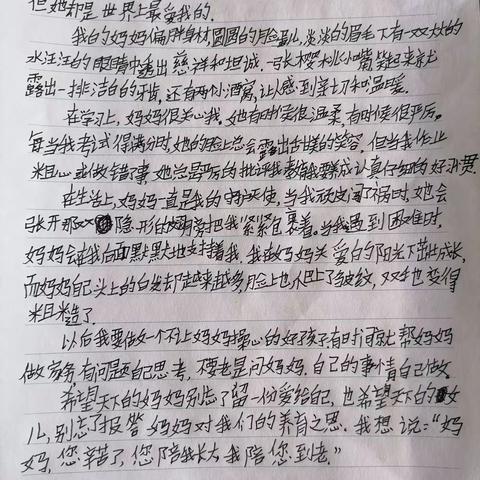 但她却是世界上最爱我的.
我的妈妈偏胖身材,圆圆的脸儿,淡淡的眉毛下有一双大大的
水汪汪的眼睛中透出慈祥和坦诚.一张樱桃小嘴笑起来就
露出一排洁白的牙齿,还有两个小酒窝,让人感到亲切和温暖.
在学习上,妈妈很关心我.她有时候很温柔,有时候很严厉.
每当我考试得满分时,她的脸总会露出甜美的笑容.但当我作业
粗心或做错了事,她总是严厉的批评我,教育我养成认真仔细的好习惯.
在生活上,妈妈一直是我的守护天使,当我顽皮闯了祸时,她会
张开那双隐形的翅膀把我紧紧包裹着.当我遇到困难时,
妈妈会在我后面默默地支持着我,我在妈妈关爱的阳光下茁壮成长,
而妈妈自己头上的白发却越来越多,脸上也爬上了皱纹,双手也变得
粗糙了.
以后我要做一个不让妈妈操心的好孩子,有时间就帮妈妈
做家务,有问题自己思考,不要老是问妈妈.自己的事情自己做.
希望天下的妈妈别忘了留一份爱给自己,也希望天下的女
儿,别忘了报答妈妈对我们的养育之恩.我想说:“妈
妈,您辛苦了,您陪我长大,我陪您到老.”